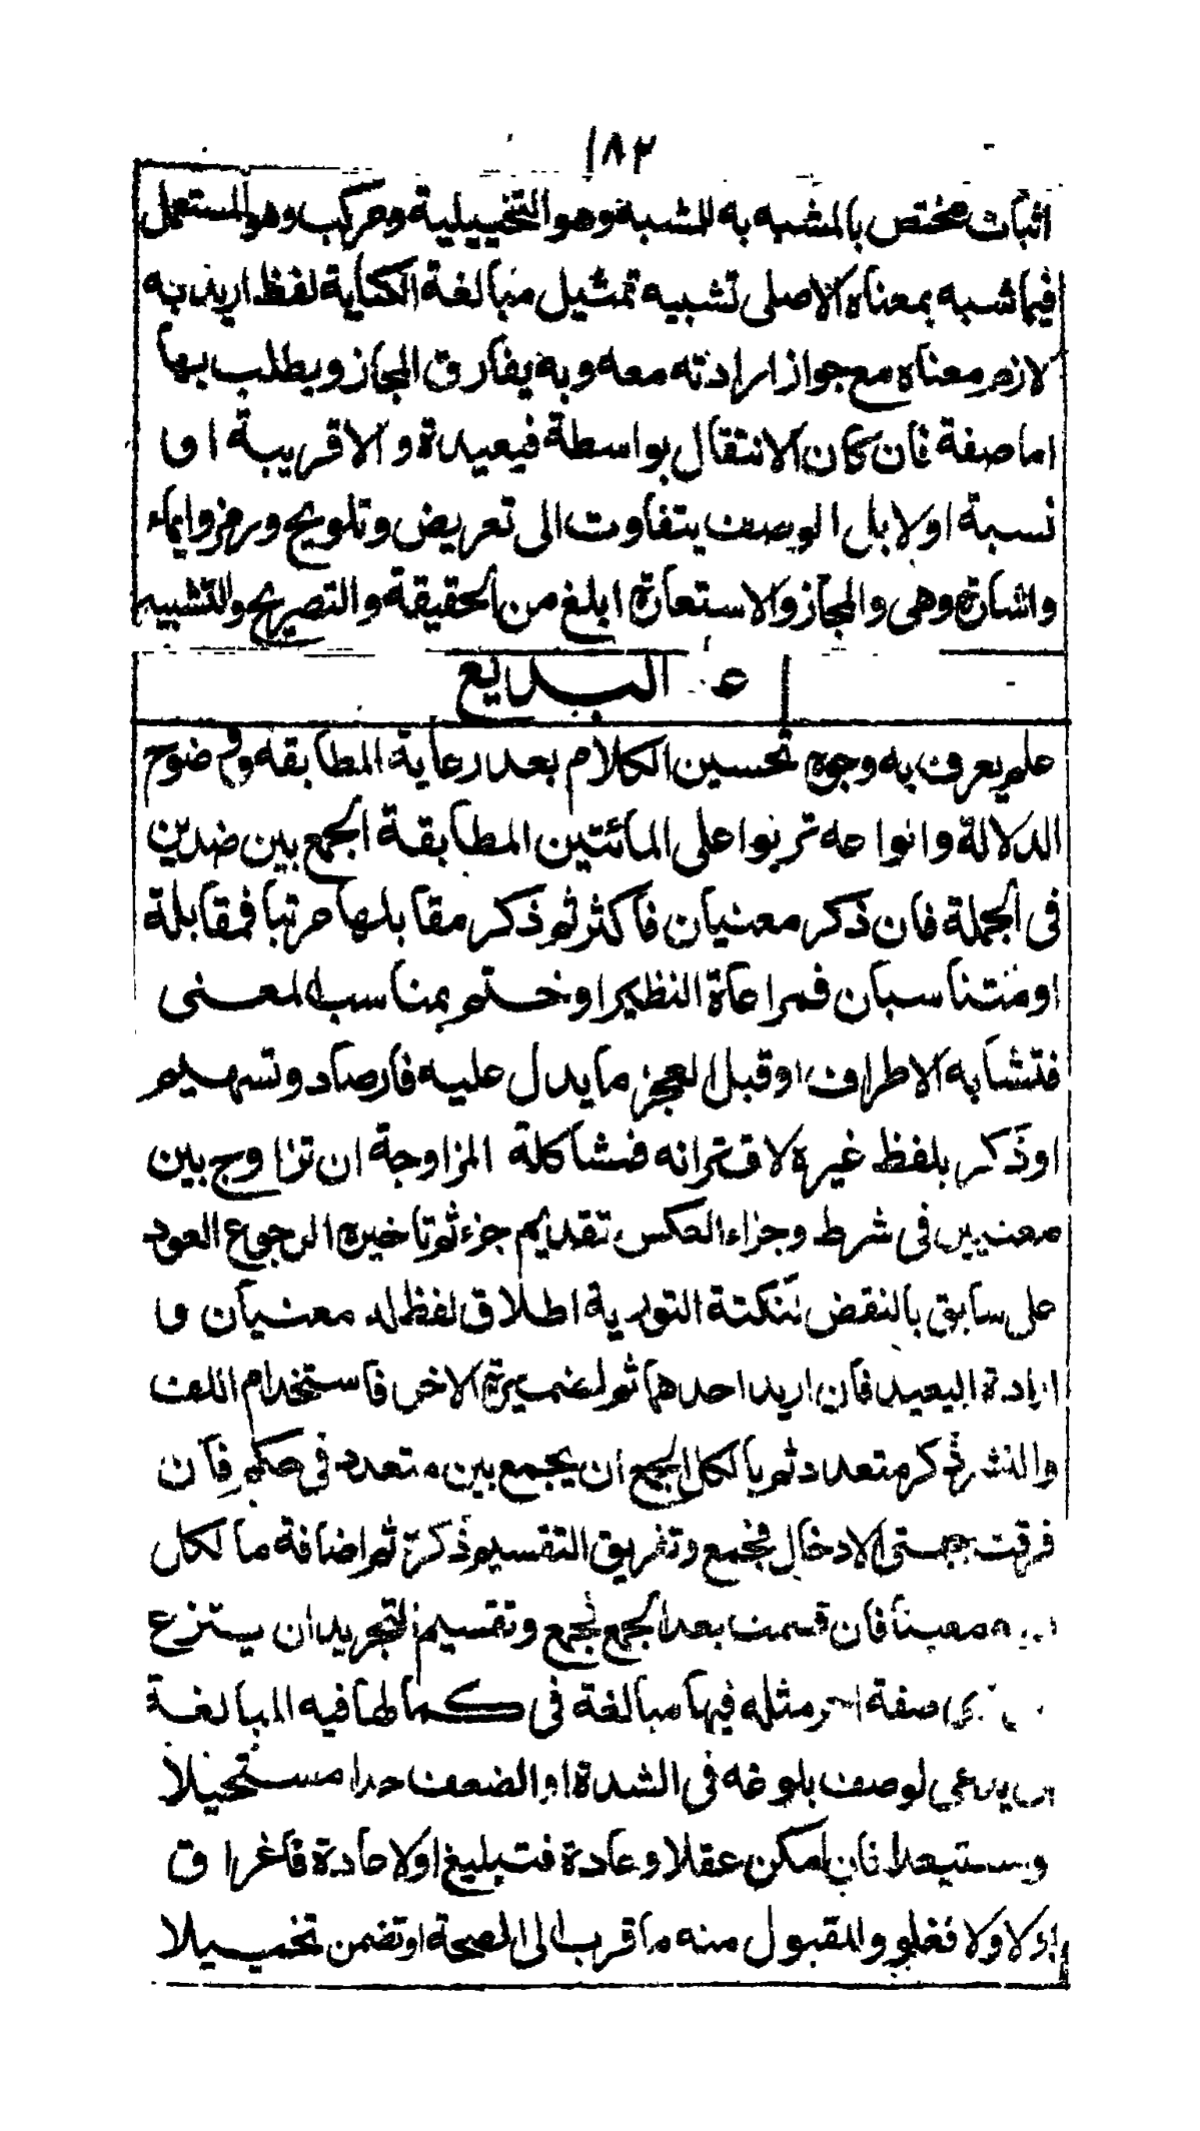 ١٨٢
اثبات مختص بالمشبه به للمشبه وهو التخييلية ومركب وهو المستعمل
فيما شبه بمعناه الاصلى تشبيه تمثيل مبالغة الكناية لفظ اريد به
لازم معناه مع جواز ارادته معه وبه يفارق المجاز ويطلب بها
اما صفة فان كان الانتقال بواسطة فبعيدة والا قريبة او
نسبة اولا بل الوصف يتفاوت الى تعريض وتلويح ورمز وايماء
واشارة وهى والمجاز والاستعارة ابلغ من الحقيقة والتصريح والتشبيه
البديع
علم يعرف به وجوه تحسين الكلام بعد رعاية المطابقه ووضوح
الدلالة وانواعه تربوا على المائتين المطابقة الجمع بين ضدين
فى الجملة فان ذكر معنيان فاكثر ثم ذكر مقابلها مرتبا فمقابلة
او متناسبان فمراعاة النظير او ختم بمناسب المعنى
فتشابه الاطراف او قبل العجز ما يدل عليه فارصاد وتسهيم
او ذكر بلفظ غيره لاقترانه فمشاكلة المزاوجة ان تزاوج بين
معنيين فى شرط وجزاء العكس تقديم جزء ثم تاخيره الرجوع العود
على سابق بالنقض لنكتة التورية اطلاق لفظ له معنيان و
ارادة البعيد فان اريد احدهما ثم لضميره الاخر فاستخدام اللف
والنشر ذكر متعدد ثم بالكل الجمع ان يجمع بين متعدد فى حكم فان
فرقت جهتى الادخال فجمع وتفريق التقسيم ذكره ثم اضافة ما لكل
معينا فان قسمت بعد الجمع فجمع وتقسيم التجريد ان ينتزع
صفة مثله فيها مبالغة فى كمالها فيه المبالغة
يدعى لوصف بلوغه فى الشدة او الضعف حدا مستحيلا
ومستبعدا فان امكن عقلا وعادة فتبليغ او لا عادة فاغراق
اولا ولا فغلو والمقبول منه ما قرب الى الصحة او تضمن تخييلا